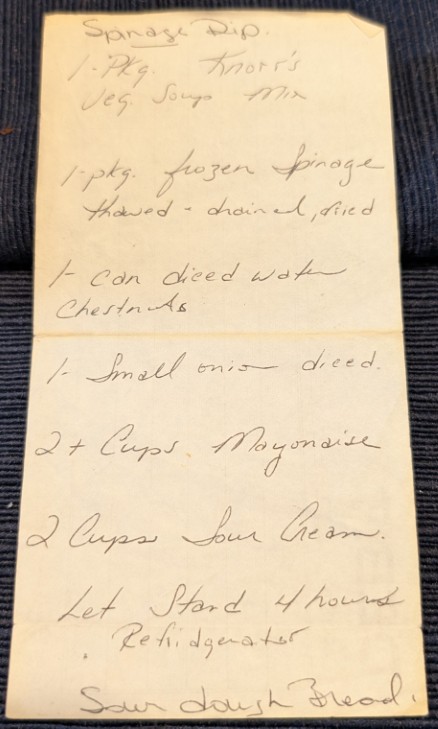 Spinage Dip.
1-Pkg. Knorr's
Veg. Soup Mix
1-pkg. frozen Spinage
thawed - drained, dried
1- can diced water
Chestnuts
1- Small onion diced.
2+ Cups Mayonaise
2 Cups Sour Cream.
Let Stand 4 hours
Refridgerator
Sour dough Bread.